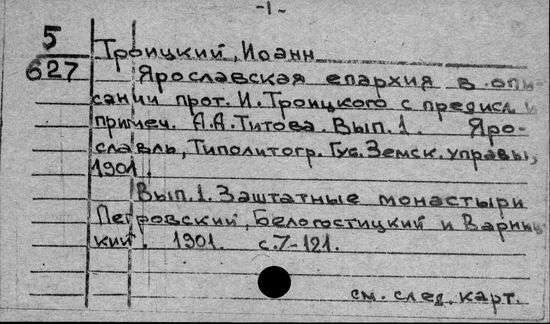 -1-
5
627
Троицкий, Иоанн
Ярославская епархия в опи-
сании прот. И. Троицкого с предисл. и
примеч. А.А.Титова. Вып.1. Яро-
славль, Типолитогр. Губ. Земск. управы,
1901.
Вып.1. Заштатные монастыри
Петровский, Белогостицкий и Варниц-
кий. 1901. с.7-121.
см. след. карт.